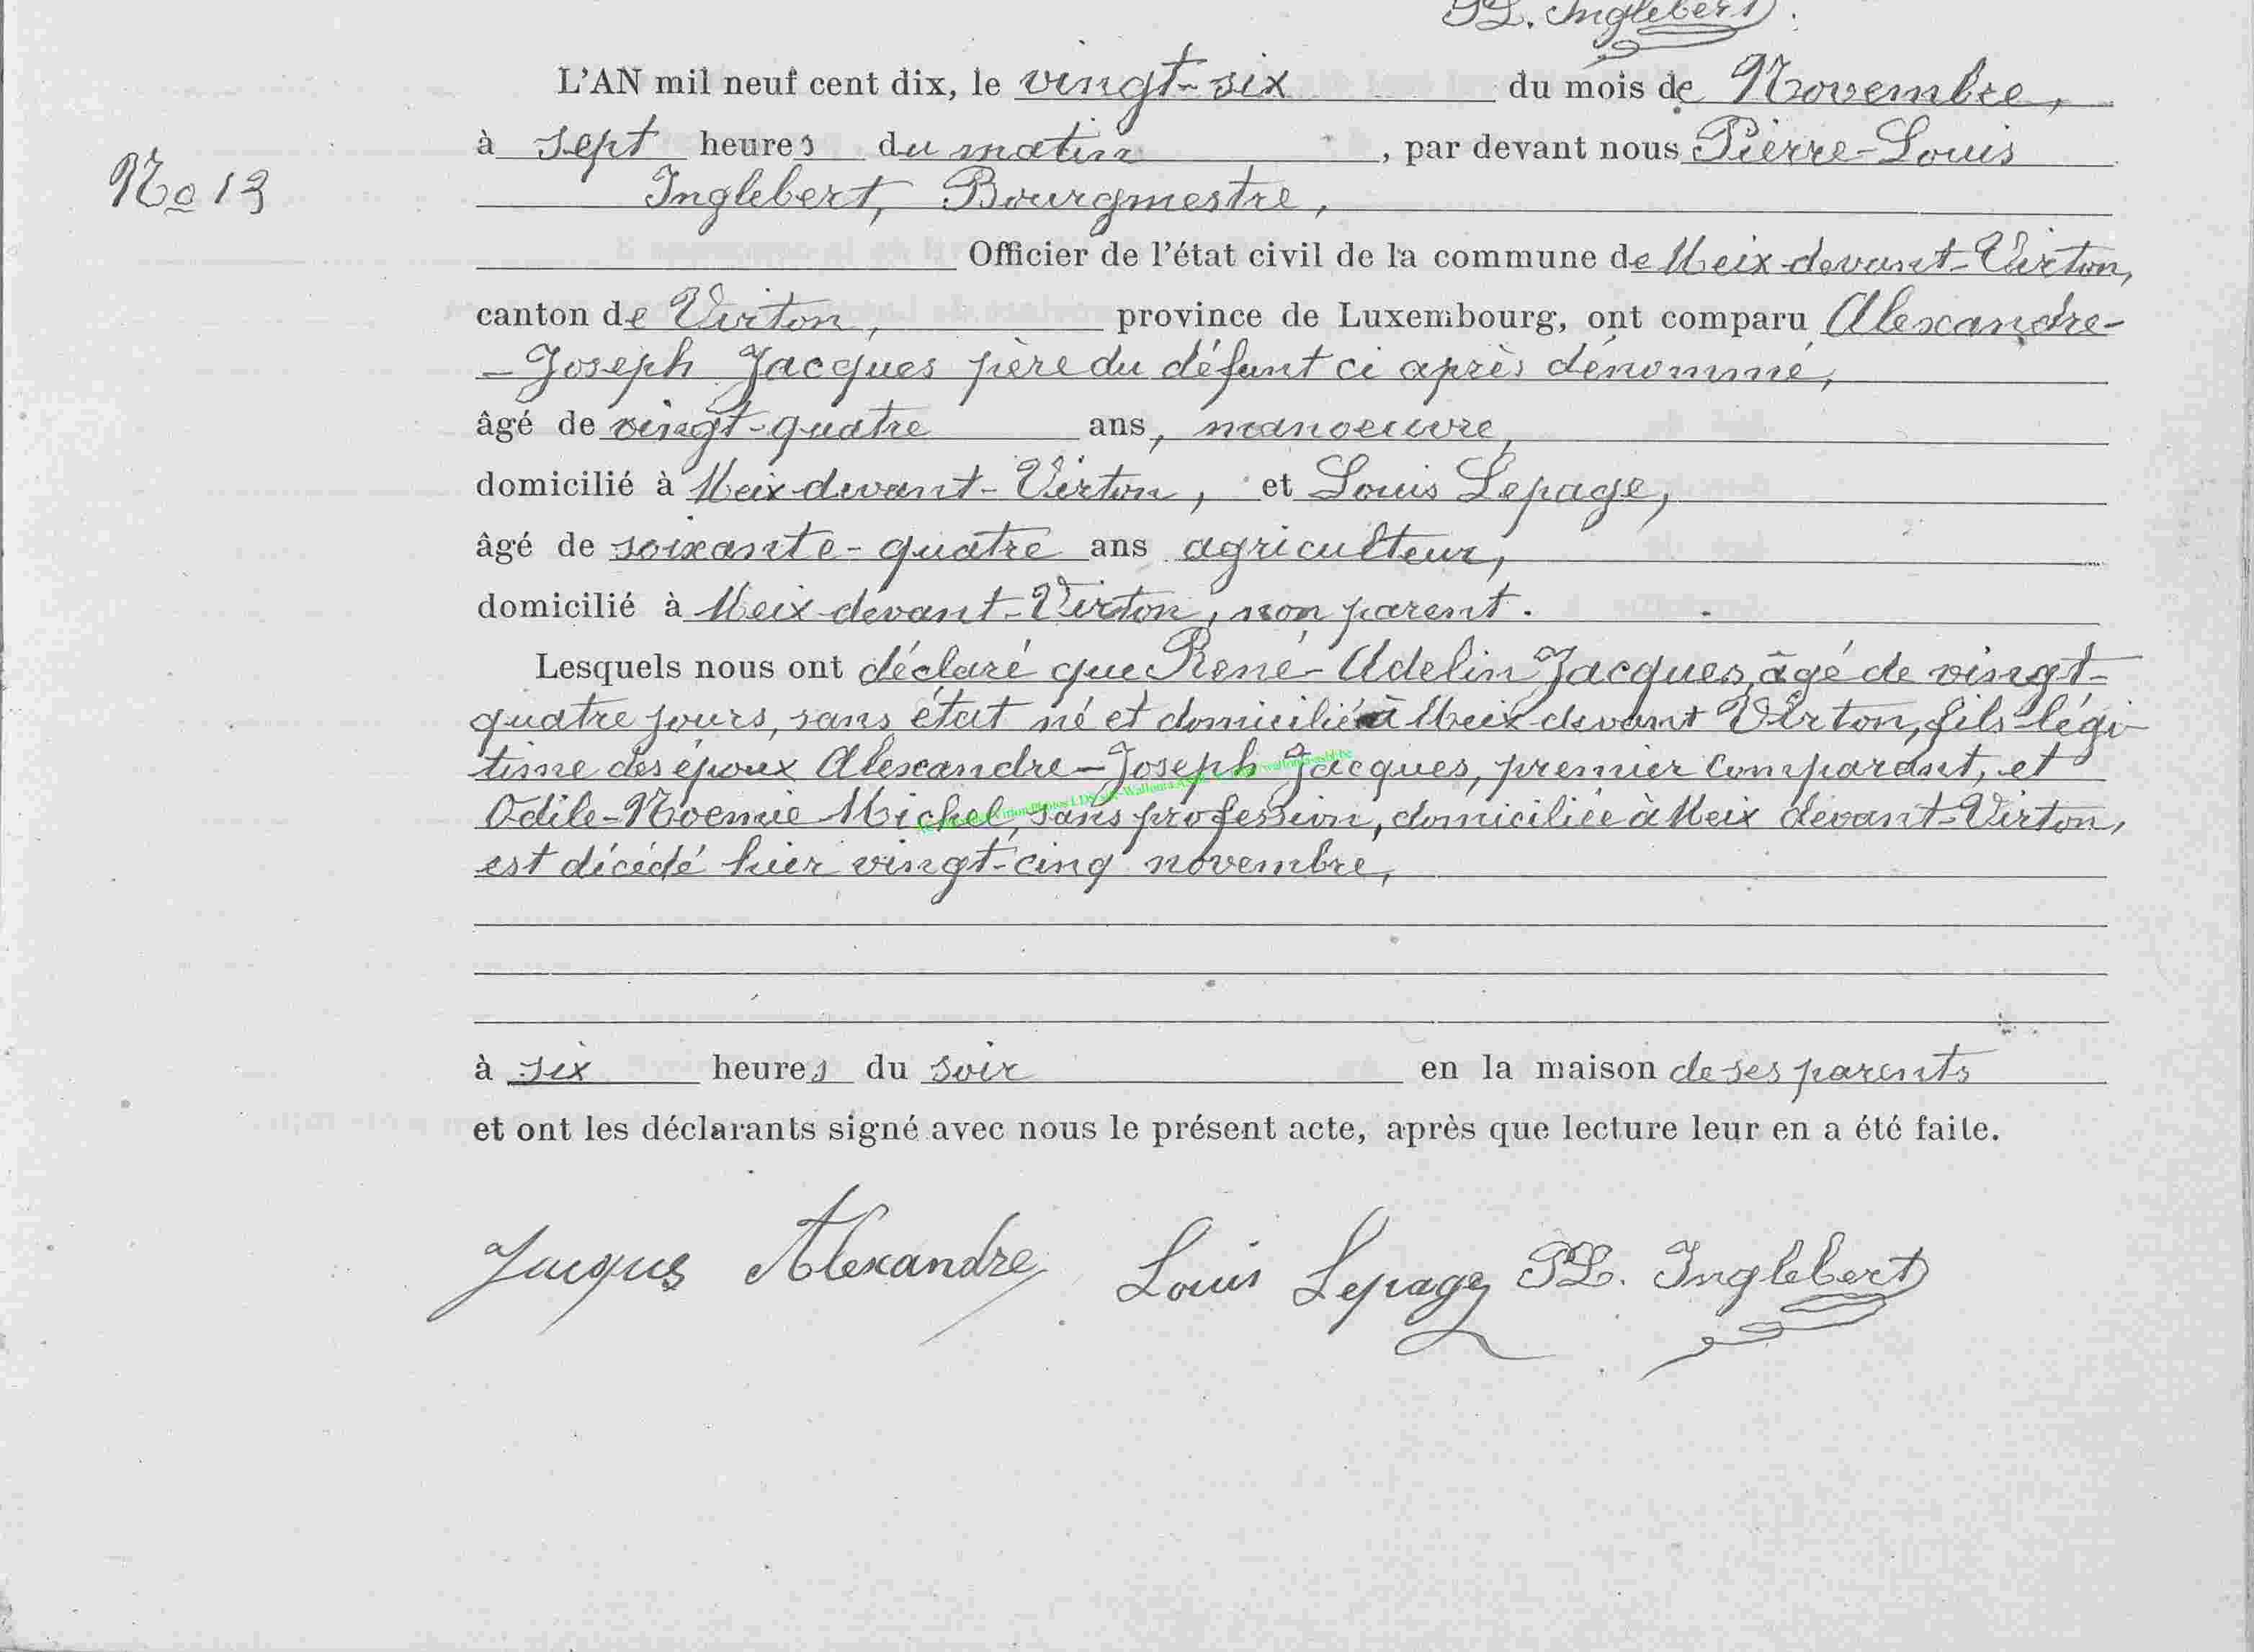 P.L. Inglebert
L'AN mil neuf cent dix, le vingt-six du mois de Novembre,
à sept heures du matin, par devant nous Pierre-Louis
No 13
Inglebert, Bourgmestre,
Officier de l'état civil de la commune de Meix-devant-Virton,
canton de Virton, province de Luxembourg, ont comparu Alexandre-
-Joseph Jacques père du défunt ci après dénommé,
âgé de vingt-quatre ans, manoeuvre,
domicilié à Meix-devant-Virton, et Louis Lepage,
âgé de soixante-quatre ans agriculteur,
domicilié à Meix-devant-Virton, non parent.
Lesquels nous ont déclaré que René-Adelin Jacques, âgé de vingt-
quatre jours, sans état né et domicilié à Meix-devant Virton, fils légi-
time des époux Alexandre-Joseph Jacques, premier comparant, et
Odile-Noemie Michel, sans profession, domiciliée à Meix devant-Virton,
est décédé hier vingt-cinq novembre,
à six heures du soir en la maison de ses parents
et ont les déclarants signé avec nous le présent acte, après que lecture leur en a été faite.
Jacques Alexandre Louis Lepage P.L. Inglebert